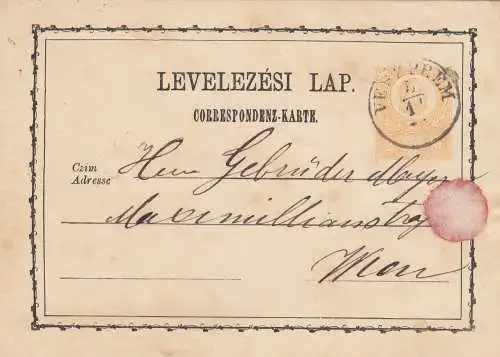 LEVELEZÉSI LAP.
CORRESPONDENZ-KARTE.
VESZPRÉM
Czim
Adresse
Herrn Gebrüder Mayer
Maximillianstraße
Wien